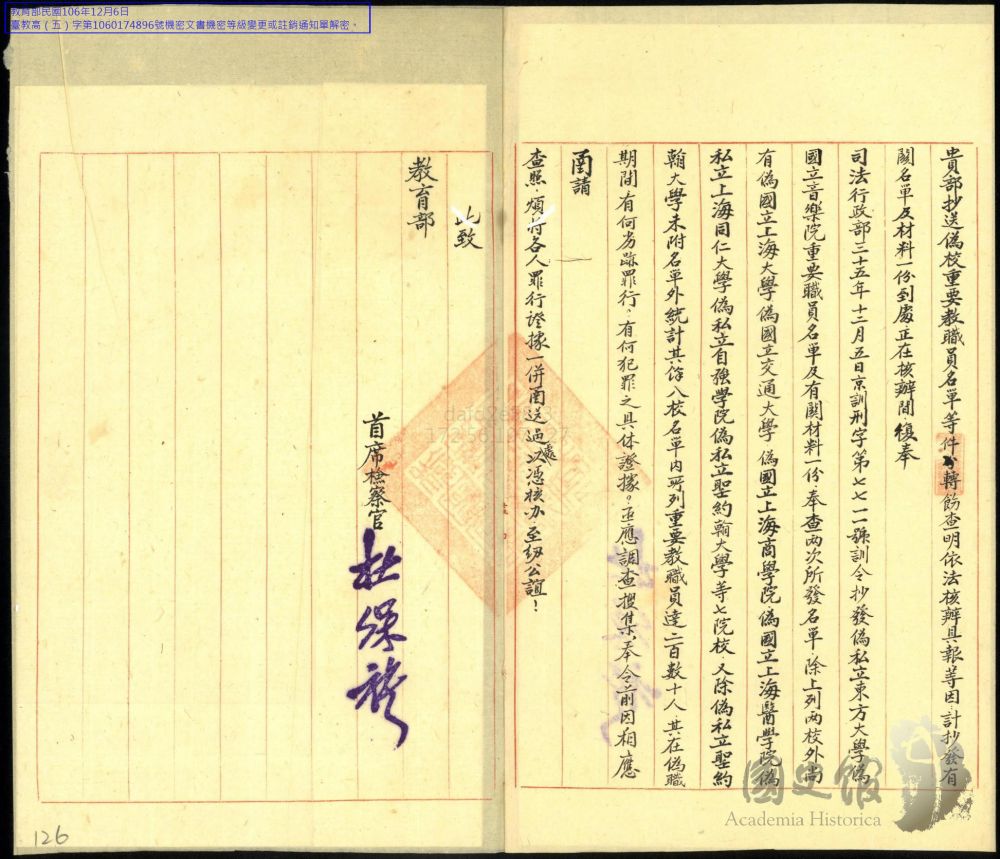 教育部民國106年12月6日
臺教高(五)字第1060174896號機密文書機密等級變更或註銷通知單解密。
貴部抄送偽校重要教職員名單等件分轉飭查明依法核辦具報等因計抄發有
關名單及材料一份到處正在核辦間復奉
司法行政部三十五年十二月五日京訓刑字第七七一一號訓令抄發偽私立東方大學偽
國立音樂院重要職員名單及有關材料一份奉查兩次所發名單除上列兩校外尚
有偽國立上海大學偽國立交通大學偽國立上海商學院偽國立上海醫學院偽
私立上海同仁大學偽私立自強學院偽私立聖約翰大學等七院校又除偽私立聖約
翰大學未附名單外統計其餘八校名單內所列重要教職員達二百數十人其在偽職
期間有何劣跡罪行。有何犯罪之具体證據。亟應調查搜集奉令前因相應
函請
查照煩將各人罪行證據一併函送過處以憑核办至紉公誼!
此致
教育部
首席檢察官
杜保祺
126
國史館
Academia Historica